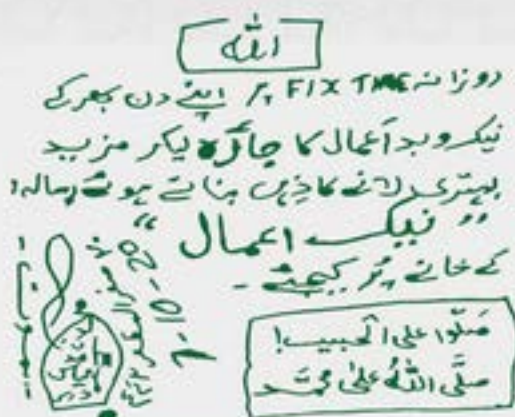 اللہ
روزانہ FIX TIME پر اپنے دن بھر کے
نیک و بد اعمال کا جائزہ لیکر مزید
بہتری لانے کا ذہن بناتے ہوئے رسالہ
”نیک اعمال“
کے خانے پُر کیجئے۔
صَلُّوا عَلَی الْحَبِیب!
صَلَّی اللهُ عَلٰی مُحَمَّد